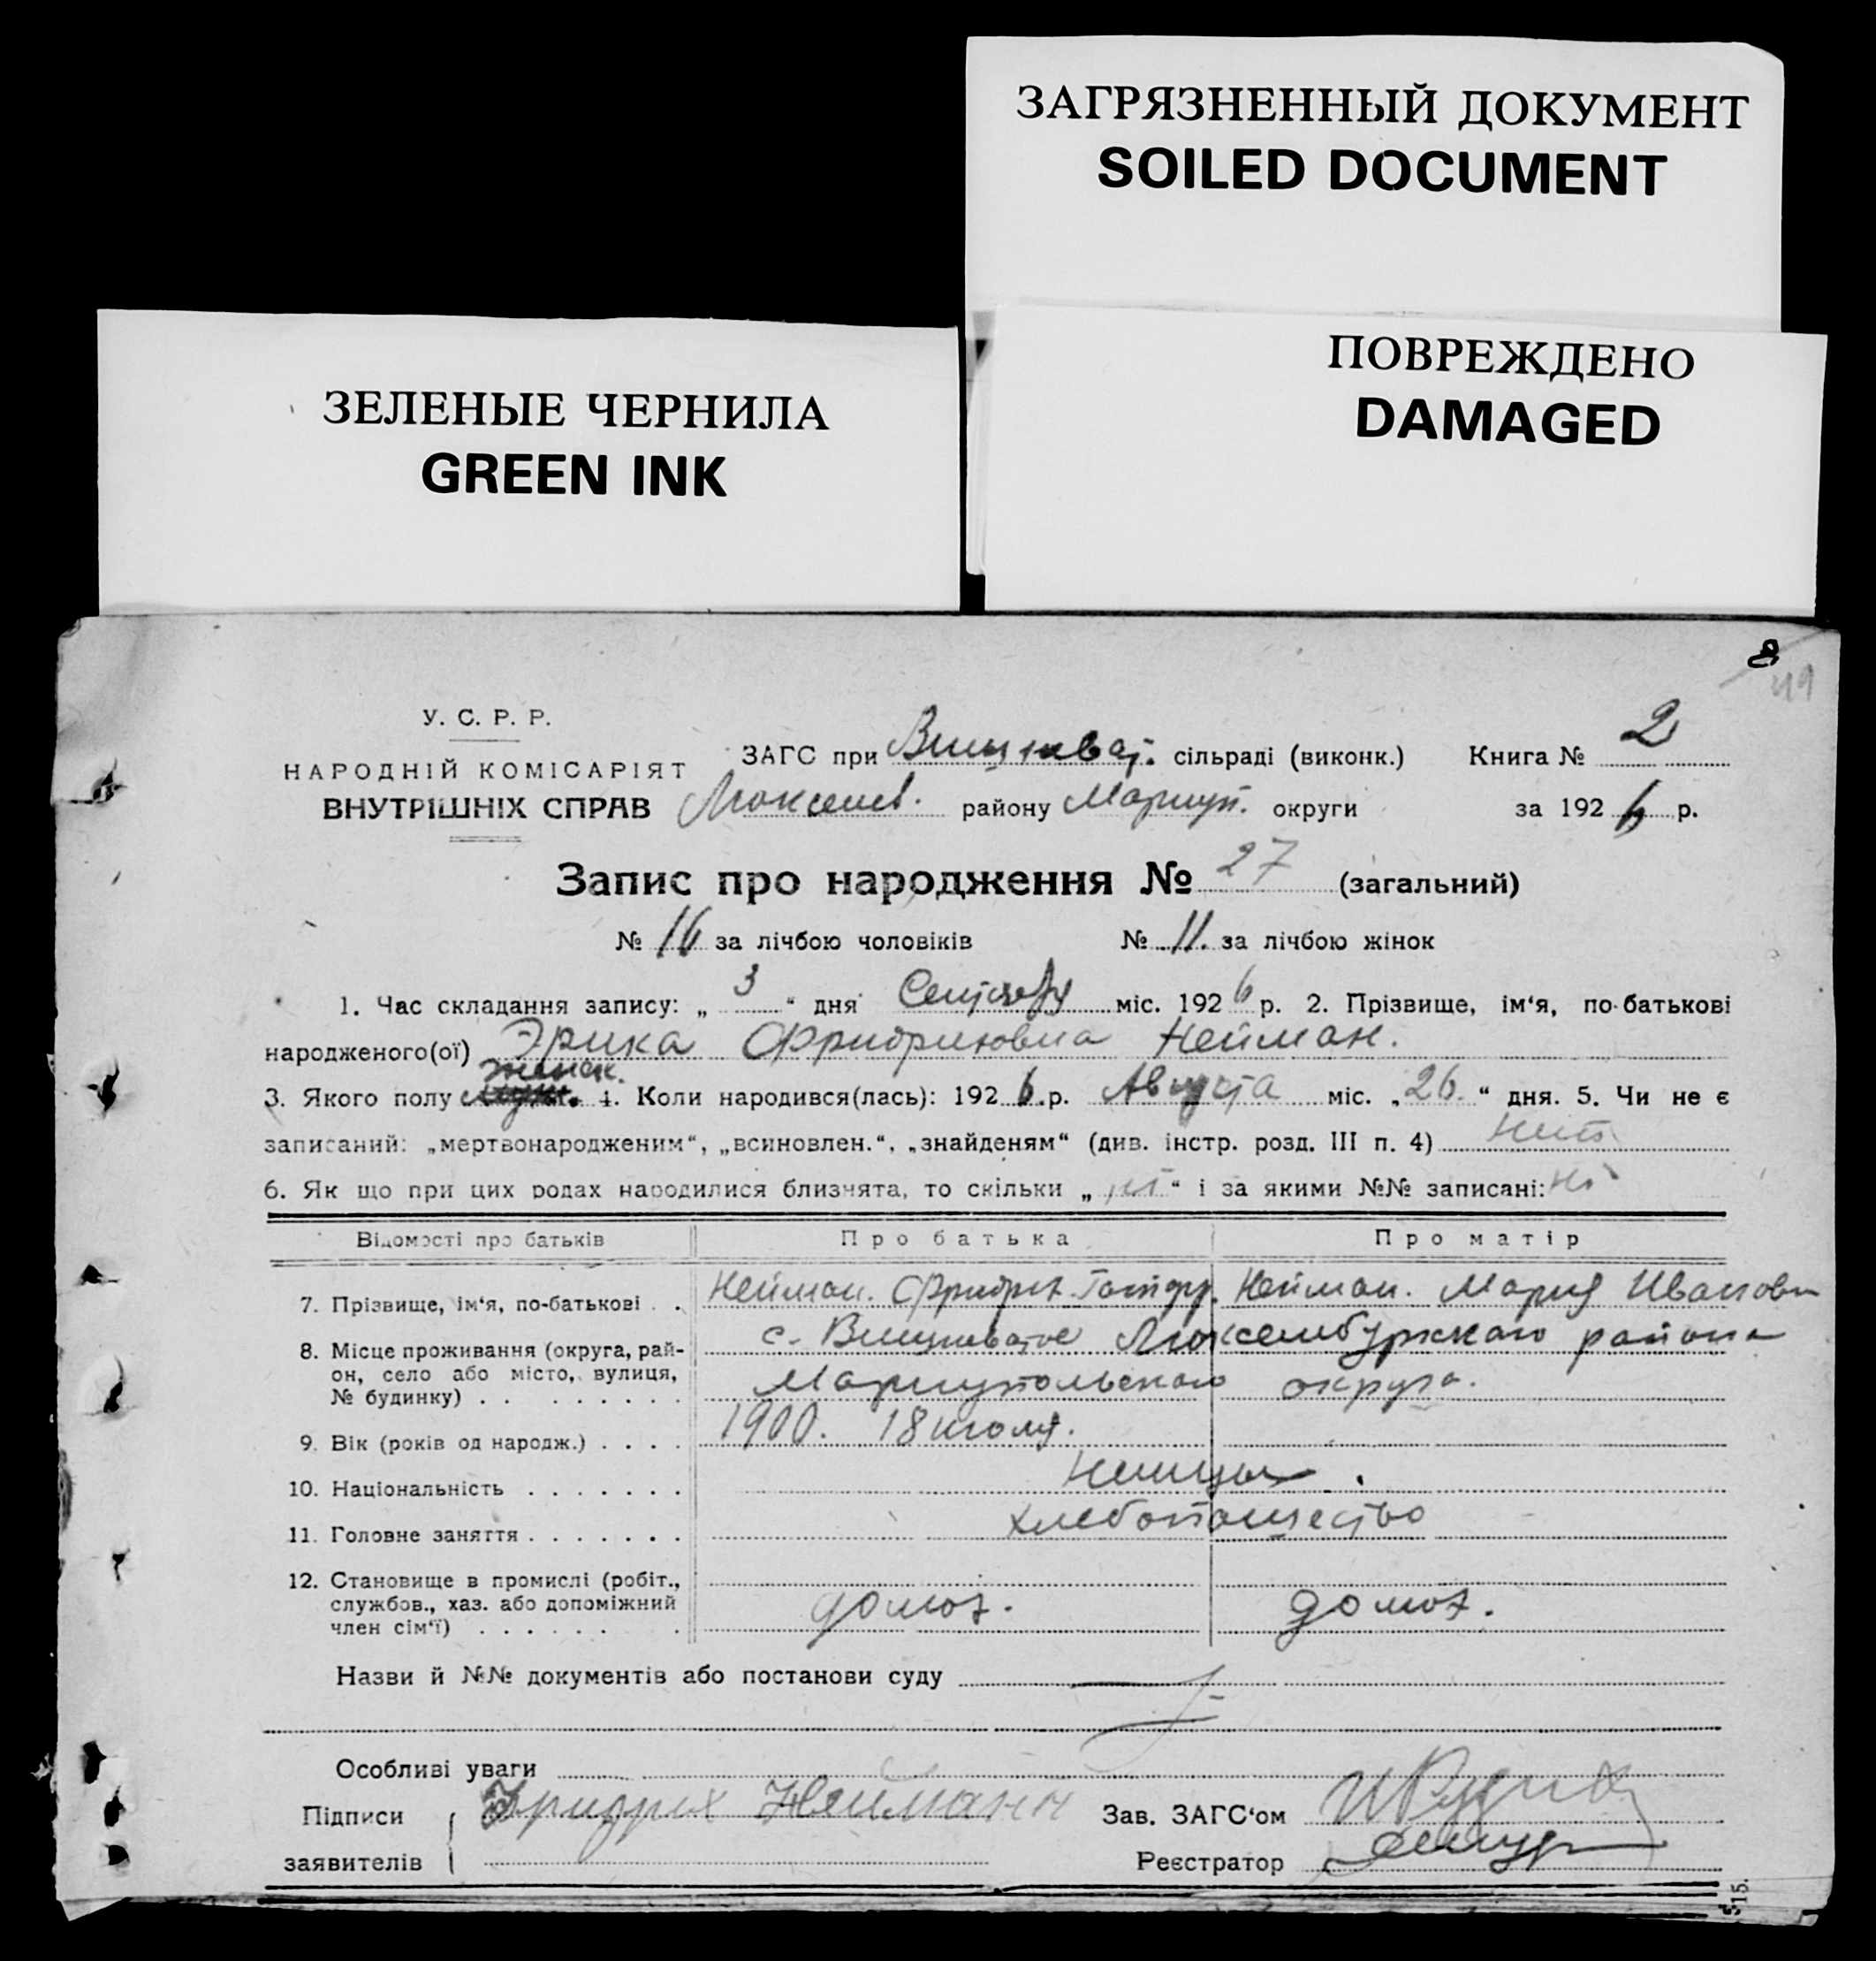 ЗАГРЯЗНЕННЫЙ ДОКУМЕНТ
SOILED DOCUMENT
ПОВРЕЖДЕНО
DAMAGED
ЗЕЛЕНЫЕ ЧЕРНИЛА
GREEN INK
8
49
У. С. Р. Р.
НАРОДНІЙ КОМІСАРІЯТ
ВНУТРІШНІХ СПРАВ
ЗАГС при Вишневат. сільраді (виконк.) Книга № 2
Люксемб. району Мариуп. округи за 1926 р.
Запис про народження № 27 (загальний)
№ 16 за лічбою чоловіків № 11. за лічбою жінок
1. Час складання запису: „ 3 “ дня Сентября міс. 1926 р. 2. Прізвище, ім‘я, по-батькові
народженого(ої) Эрика Фридриховна Нейман.
женск.
3. Якого полу муж. 4. Коли народився(лась): 1926 р. Августа міс. „ 26 “ дня. 5. Чи не є
записаний: „мертвонародженим“, „всиновлен.“, „знайденям“ (див. інстр. розд. III п. 4) нет
6. Як що при цих родах народилися близнята, то скільки „ “ і за якими №№ записані:
Відомості про батьків Про батька Про матір
7. Прізвище, ім‘я, по-батькові . . Нейман. Фридрих Нейман. Мария Ивановн
8. Місце проживання (округа, рай-он, село або місто, вулиця, № будинку) . . . . . . . . с. Вишневатое Люксембургскаго района
Мариупольскаго округа.
9. Вік (років од народж.) . . . . 1900. 18 июля.
10. Національність . . . . . . . Немцы.
11. Головне заняття . . . . . . . хлебопашество
12. Становище в промислі (робіт., службов., хаз. або допоміжний член сім‘ї) . . . . . . . домох. домох.
Назви й №№ документів або постанови суду
Особливі уваги
Підписи Фридрих Нейманн Зав. ЗАГС‘ом
заявителів Реєстратор